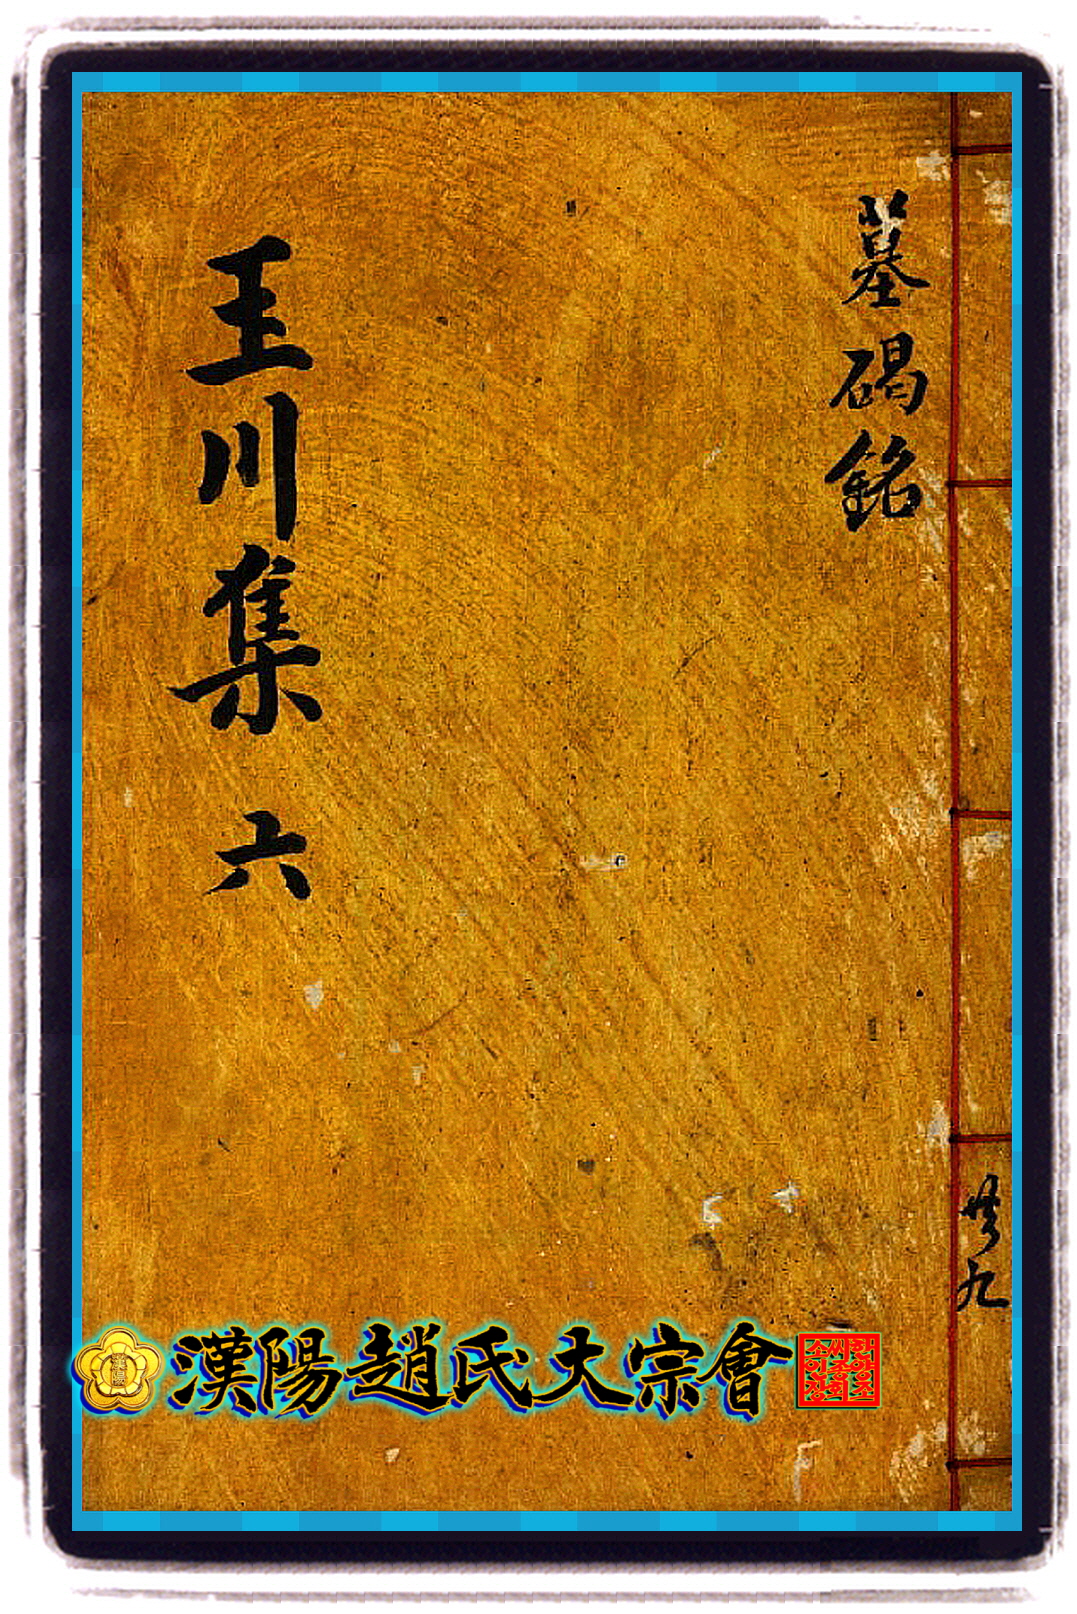 墓碣銘
玉川集 六
共九
漢陽
漢陽趙氏大宗會